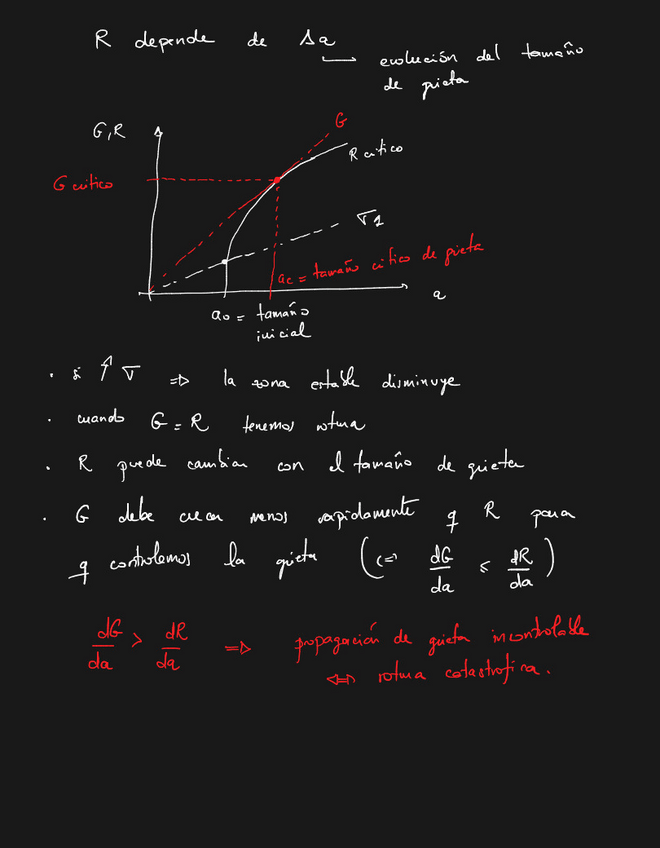 R depende de Δa
evolución del tamaño
de grieta
G, R
G
R critico
G critico
σ1
ac = tamaño critico de grieta
a
a0 = tamaño
inicial
• si ↑ σ ⇒ la zona estable disminuye
• cuando G = R tenemos rotura
• R puede cambiar con el tamaño de grieta
• G debe crecer menos rapidamente q R para
q controlemos la grieta (⇔ dG/da ≤ dR/da)
dG/da > dR/da ⇒ propagación de grieta incontrolable
⇔ rotura catastrofica.